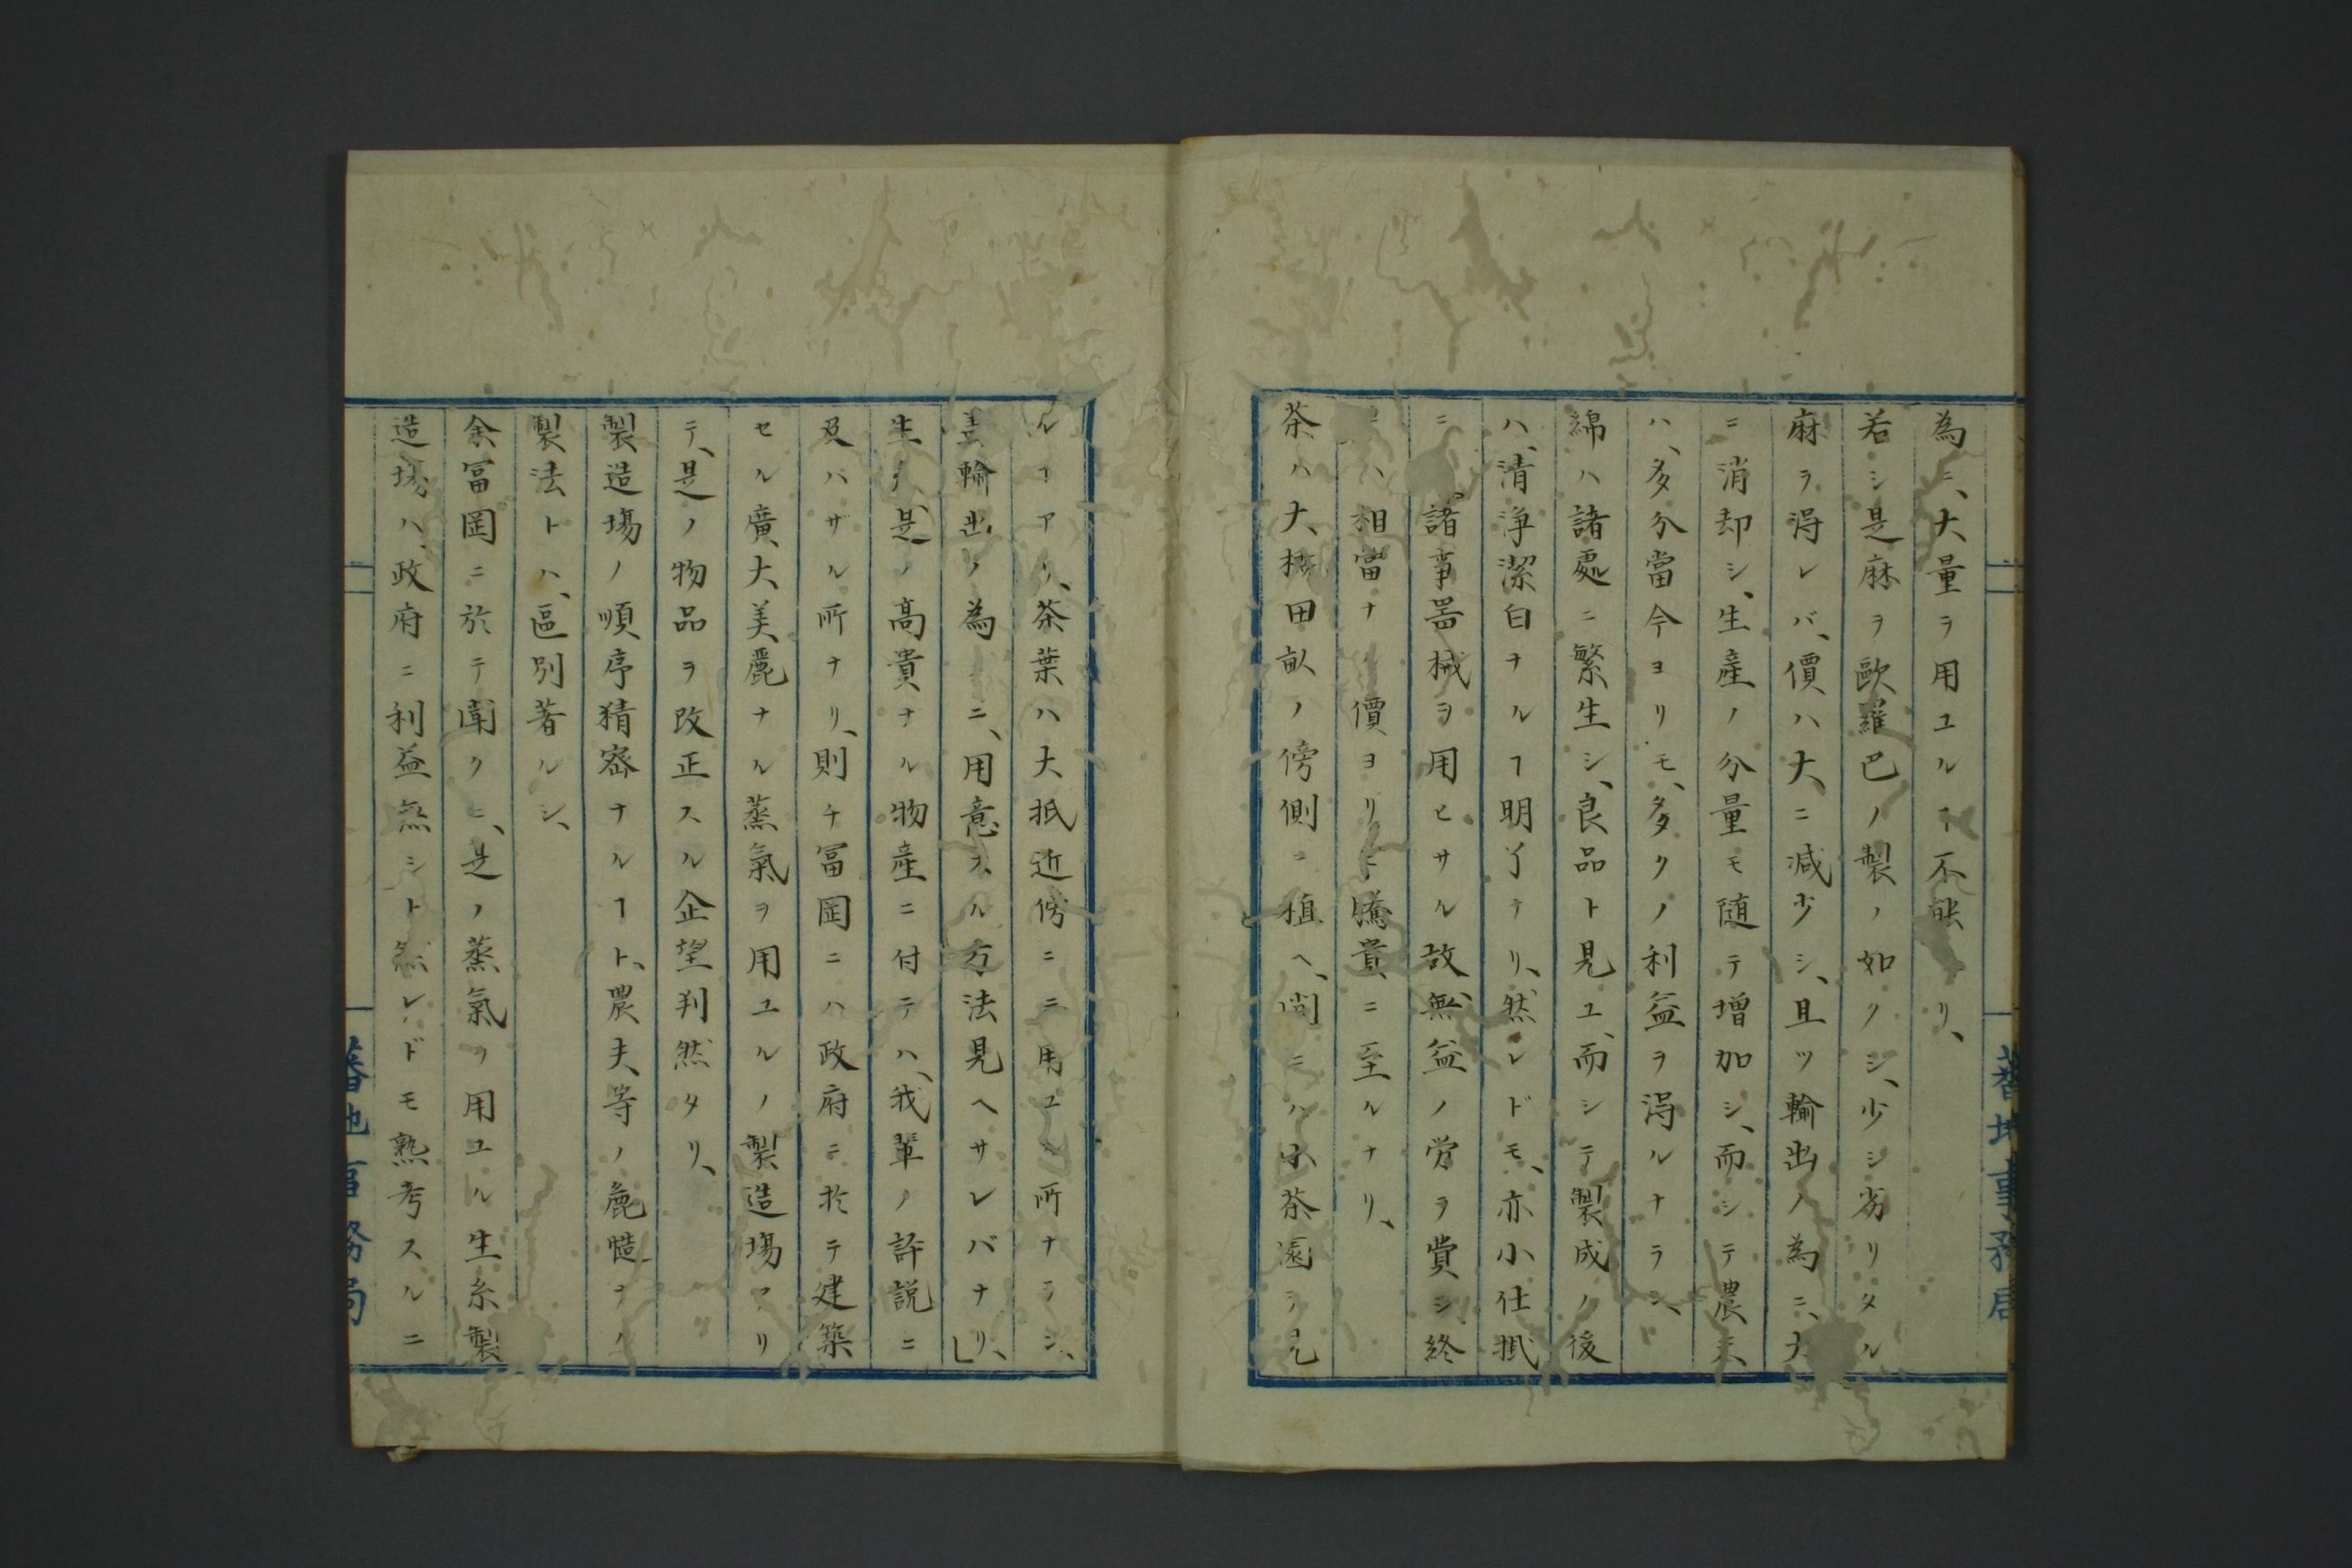 為ニ、大量ヲ用ユルヿ不能リ、
若シ是麻ヲ歐羅巴ノ製ノ如クシ、少シ劣リタル
麻ヲ得レバ、價ハ大ニ減少シ、且ツ輸出ノ為ニ、大
ニ消却シ、生産ノ分量モ随テ増加シ、而シテ農夫、
ハ、多分當今ヨリモ、多クノ利益ヲ得ルナラン、
綿ハ諸處ニ繁生シ、良品ト見ユ、而シテ製成ノ後
ハ、清浄潔白ナルヿ明了ナリ、然レドモ、亦小仕掛
ニ、諸事器械ヲ用ヒサル故、無益ノ労ヲ費シ、終
ニハ相當ナル價ヨリモ、騰貴ニ至ルナリ、
茶ハ大抵田畝ノ傍側ニ植ヘ、間ニハ小茶園ヲ見
ルヿアリ、茶葉ハ大抵近傍ニ用ユル所ナラン、
蓋輸出ノ為ニ、用意スル方法見ヘサレバナリ、
生糸、是ノ高貴ナル物産ニ付テハ、我輩ノ許説ニ
及バサル所ナリ、則チ冨岡ニハ政府ニ於テ建築
セル廣大美麗ナル蒸氣ヲ用ユルノ製造場アリ
テ、是ノ物品ヲ改正スル企望判然タリ、
製造場ノ順序精密ナルヿト、農夫等ノ麁慥ナル
製法トハ、區別著ルシ、
余冨岡ニ於テ聞クニ、是ノ蒸氣ヲ用ユル生糸製
造場ハ、政府ニ利益無シト然レドモ熟考スルニ
蕃地事務局
蕃地事務局